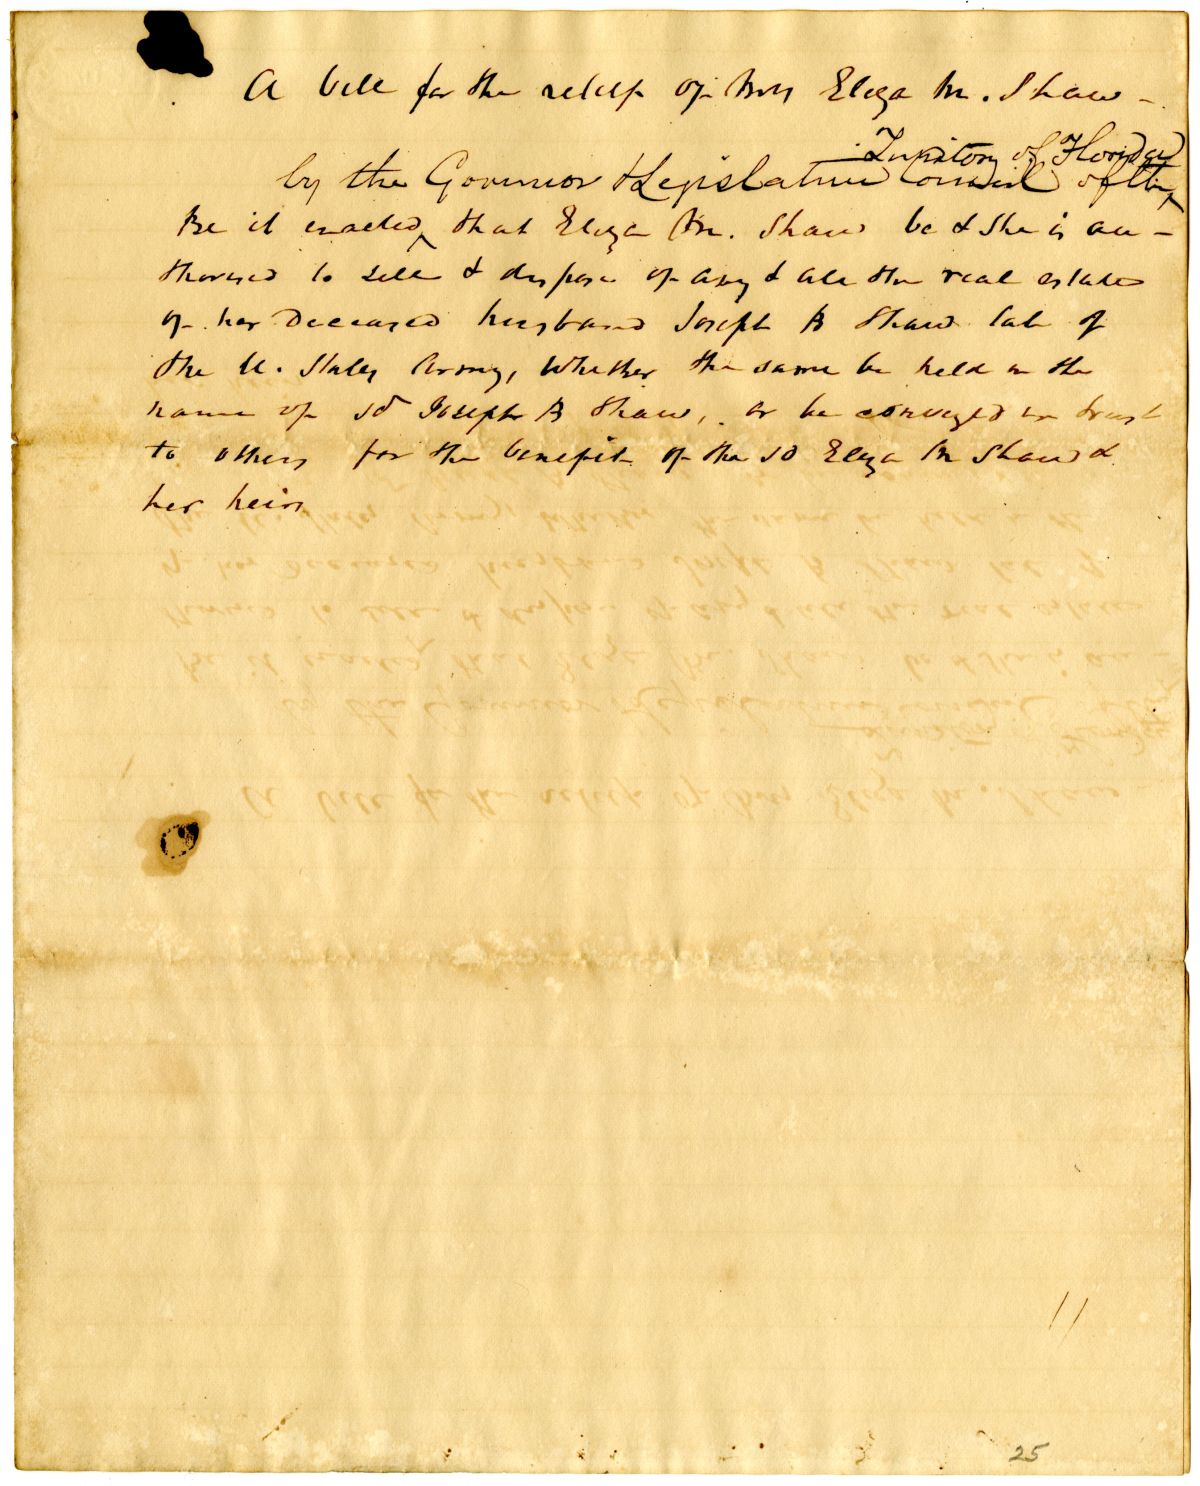 A bill for the relief of Mrs Eliza M. Shaw -
Territory of Florida
by the Governor & Legislative Council of the
Be it enacted, that Eliza M. Shaw be & she is au-
thorised to sell & dispose of any & all the real estate
of her deceased husband Joseph B Shaw late of
the U. States Army, whether the same be held in the
name of sd Joseph B Shaw, or be conveyed in trust
to others for the benefit of the sd Eliza M Shaw &
her heirs
11
25